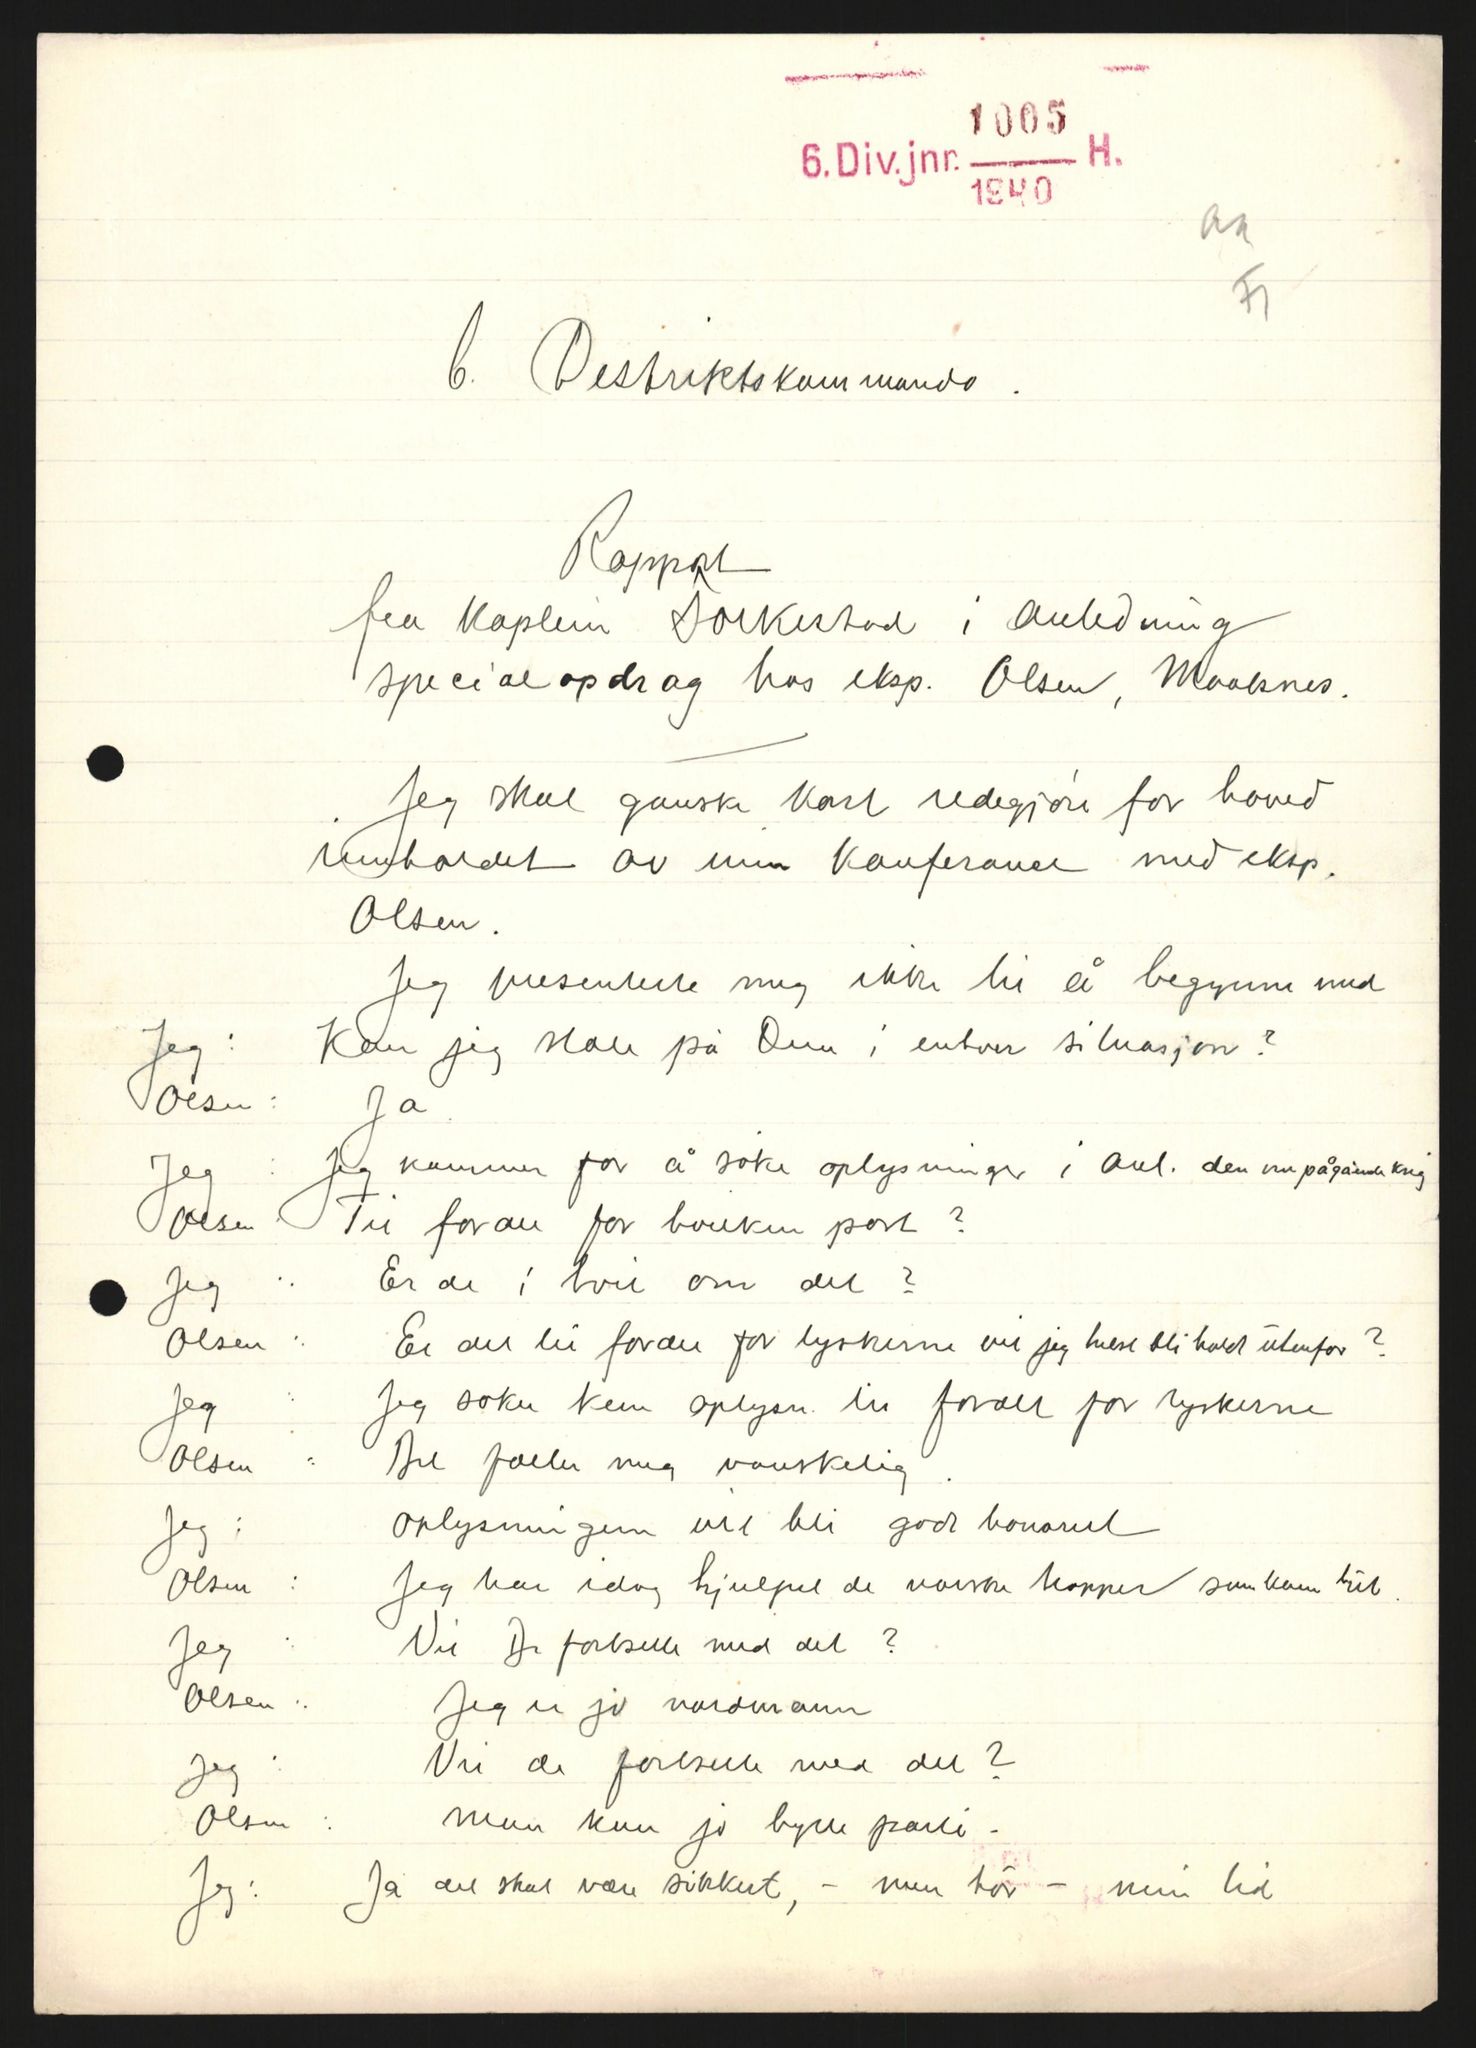 1005
6. Div. jnr. H.
1940
6. Distriktskommando.
Rapport
fra kaptein i anledning
specialopdrag hos eksp. Olsen,
Jeg skal ganske kort redegjöre for hoved
innholdet av min konferanse med eksp.
Olsen.
Jeg presenterte mig ikke til å begynne med
Jeg: Kan jeg stole på Dem i enhver situasjon?
Olsen: Ja
Jeg: Jeg kommer for å söke oplysninger i anl. den nu pågående krig
Olsen: Til fordel for hvilken part?
Jeg: Er de i tvil om det?
Olsen: Er det til fordel for tyskerne vil jeg helst bli holdt utenfor?
Jeg: Jeg söker kun oplysn. til fordel for tyskerne
Olsen: Det faller mig vanskelig.
Jeg: Oplysningene vil bli godt honorert
Olsen: Jeg har idag hjulpet de norske tropper som kom hit.
Jeg: Vil De fortsette med det?
Olsen: Jeg er jo nordmann
Jeg: Vil de fortsette med det?
Olsen: Man kan jo bytte parti -
Jeg: Ja det skal være sikkert, - men hör - min tid